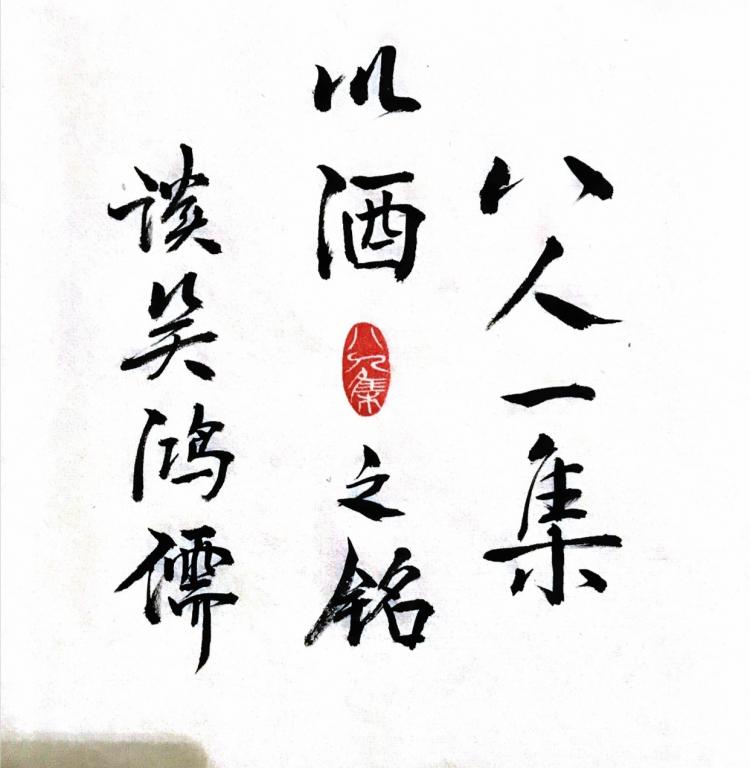 八人一集
以酒之铭
谈笑鸿儒
八人集